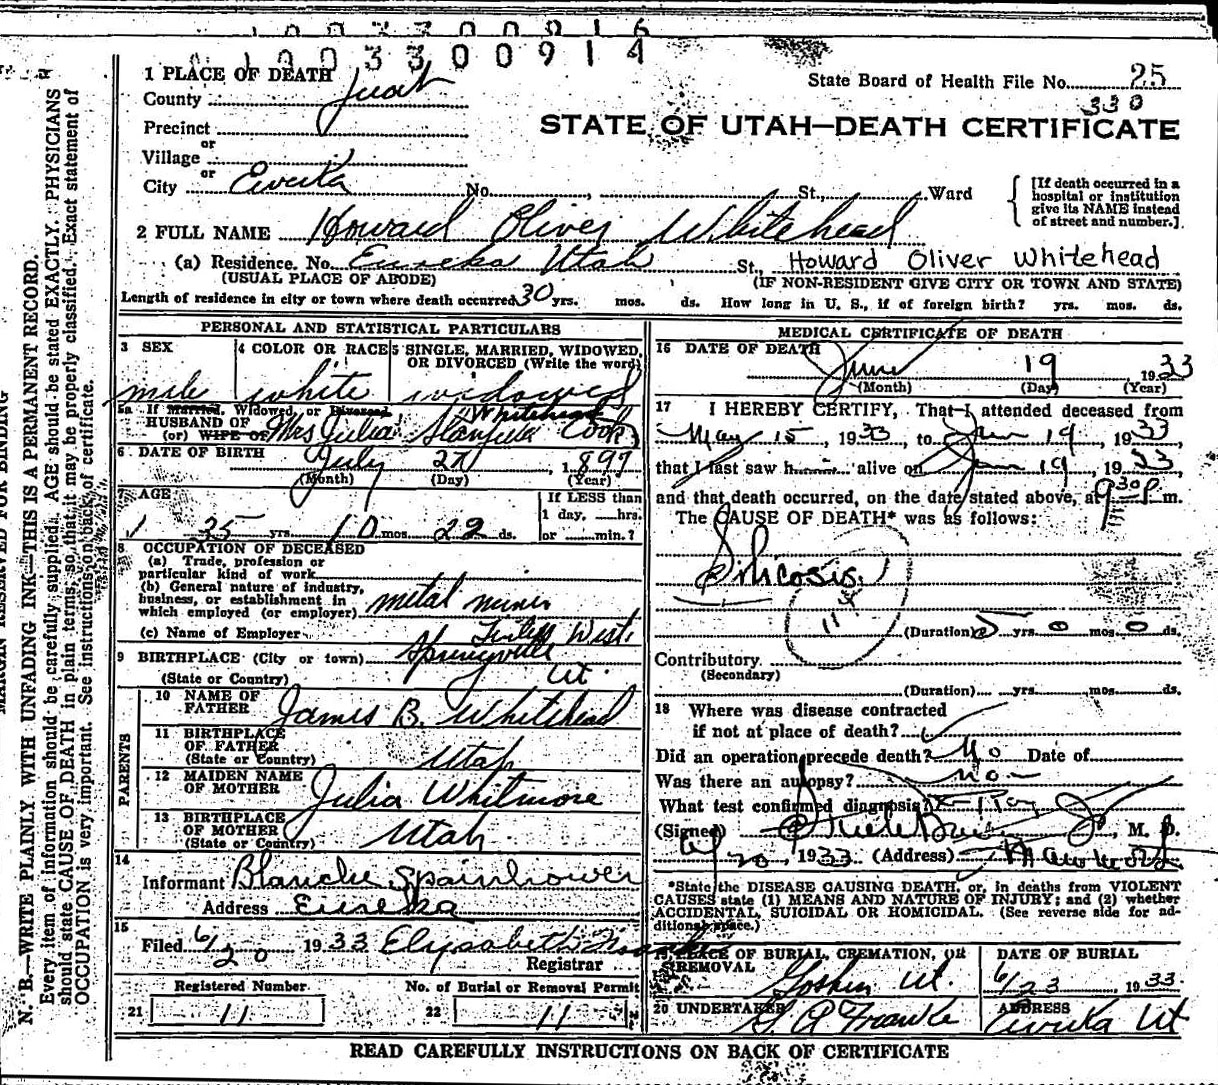 1003300914
1 PLACE OF DEATH
County Juab
State Board of Health File No. 25
330
Precinct
or
Village
or
City Eureka No. , St., Ward
STATE OF UTAH—DEATH CERTIFICATE
[If death occurred in a
hospital or institution
give its NAME instead
of street and number.]
2 FULL NAME Howard Oliver Whitehead
(a) Residence. No. Eureka Utah St., Howard Oliver Whitehead
(USUAL PLACE OF ABODE) (IF NON-RESIDENT GIVE CITY OR TOWN AND STATE)
Length of residence in city or town where death occurred 30 yrs. mos. ds. How long in U. S., if of foreign birth? yrs. mos. ds.
PERSONAL AND STATISTICAL PARTICULARS
3 SEX
male
4 COLOR OR RACE
white
5 SINGLE, MARRIED, WIDOWED,
OR DIVORCED (Write the word)
widowed
5a If Married, Widowed, or Divorced
HUSBAND OF
(or) WIFE OF Mrs Julia Cook
6 DATE OF BIRTH July 27, 1897
(Month) (Day) (Year)
7 AGE
35 yrs. 10 mos. 22 ds.
If LESS than
1 day, hrs.
or min.?
8 OCCUPATION OF DECEASED
(a) Trade, profession or
particular kind of work
(b) General nature of industry,
business, or establishment in
which employed (or employer) metal miner
(c) Name of Employer West.
9 BIRTHPLACE (City or town) Springville
(State or Country) Ut.
PARENTS
10 NAME OF
FATHER James B. Whitehead
11 BIRTHPLACE
OF FATHER
(State or Country) Utah
12 MAIDEN NAME
OF MOTHER Julia Whitmore
13 BIRTHPLACE
OF MOTHER
(State or Country) Utah
14
Informant Blanche Spainhower
Address Eureka
15
Filed 6/20 1933 Elysabeth Franke
Registrar
Registered Number
21 11
No. of Burial or Removal Permit
22 11
MEDICAL CERTIFICATE OF DEATH
16 DATE OF DEATH
June 19 1933
(Month) (Day) (Year)
17 I HEREBY CERTIFY, That I attended deceased from
May 15, 1933, to Jun 19, 1933,
that I last saw h alive on Jun 19, 1933
and that death occurred, on the date stated above, at 9 30 P. m.
The CAUSE OF DEATH* was as follows:
Silicosis
114
(Duration) 5 yrs. 0 mos. 0 ds.
Contributory
(Secondary)
(Duration) yrs. mos. ds.
18 Where was disease contracted
if not at place of death?
Did an operation precede death? No Date of
Was there an autopsy? No
What test confirmed diagnosis? X-Ray
(Signed) Steele Bailey Jr, M. D.
20, 1933 (Address)
*State the DISEASE CAUSING DEATH, or, in deaths from VIOLENT
CAUSES state (1) MEANS AND NATURE OF INJURY; and (2) whether
ACCIDENTAL, SUICIDAL OR HOMICIDAL. (See reverse side for ad-
ditional space.)
19 PLACE OF BURIAL, CREMATION, OR
REMOVAL
Goshen Ut.
DATE OF BURIAL
6/23, 1933
20 UNDERTAKER
G. A Franke
ADDRESS
Eureka Ut
READ CAREFULLY INSTRUCTIONS ON BACK OF CERTIFICATE
MARGIN RESERVED FOR BINDING
N. B.—WRITE PLAINLY WITH UNFADING INK—THIS IS A PERMANENT RECORD.
Every item of information should be carefully supplied. AGE should be stated EXACTLY. PHYSICIANS
should state CAUSE OF DEATH in plain terms, so that it may be properly classified. Exact statement of
OCCUPATION is very important. See instructions on back of certificate.